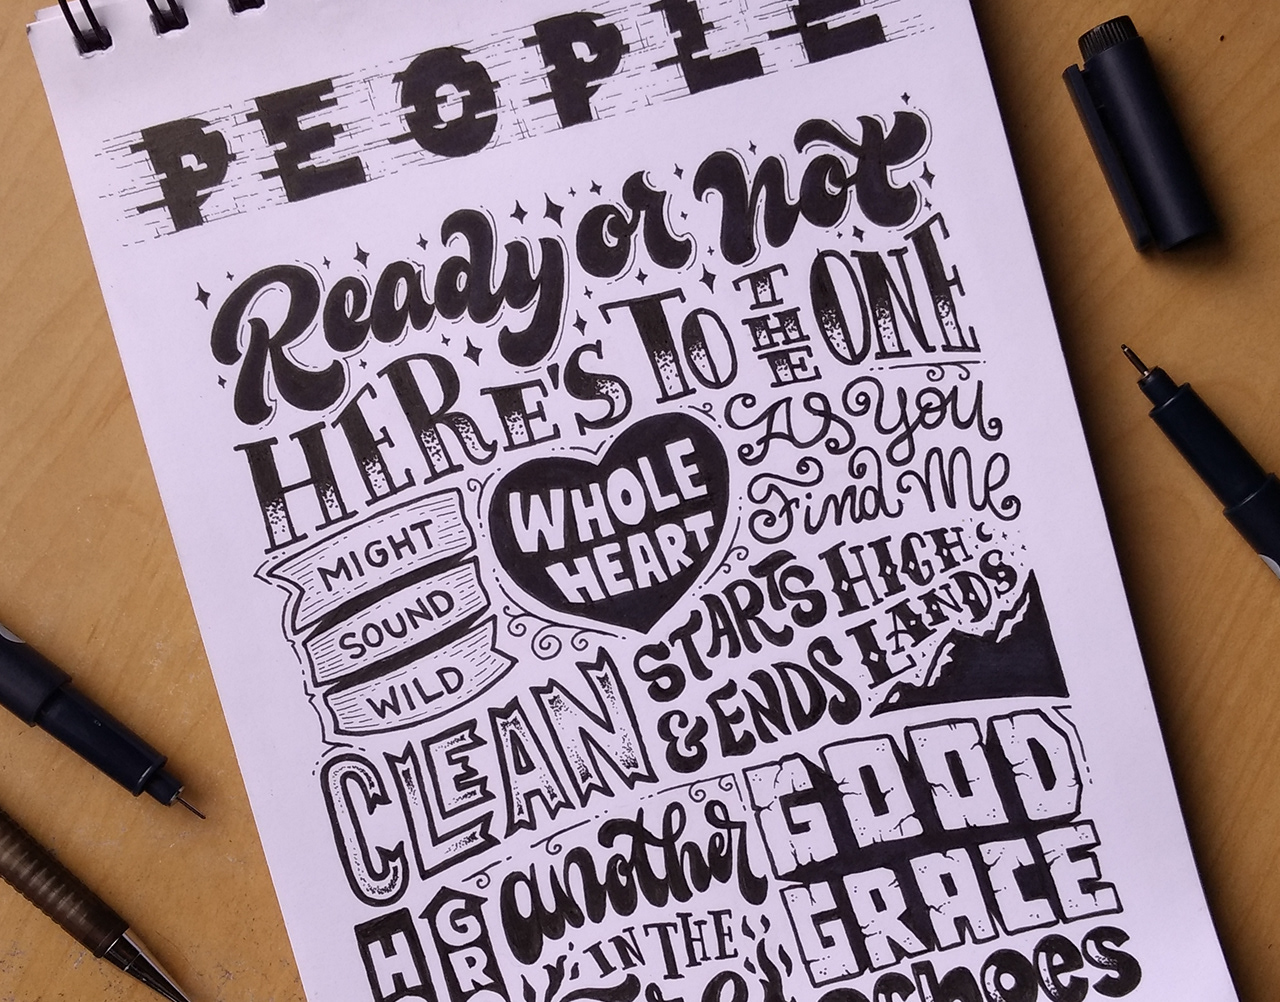 PEOPLE
Ready or Not
HERE'S TO THE ONE
MIGHT
SOUND
WILD
WHOLE
HEART
As You
Find Me
CLEAN
STARTS HIGH
& ENDS LANDS
another
IN THE
GOOD
GRACE
echoes